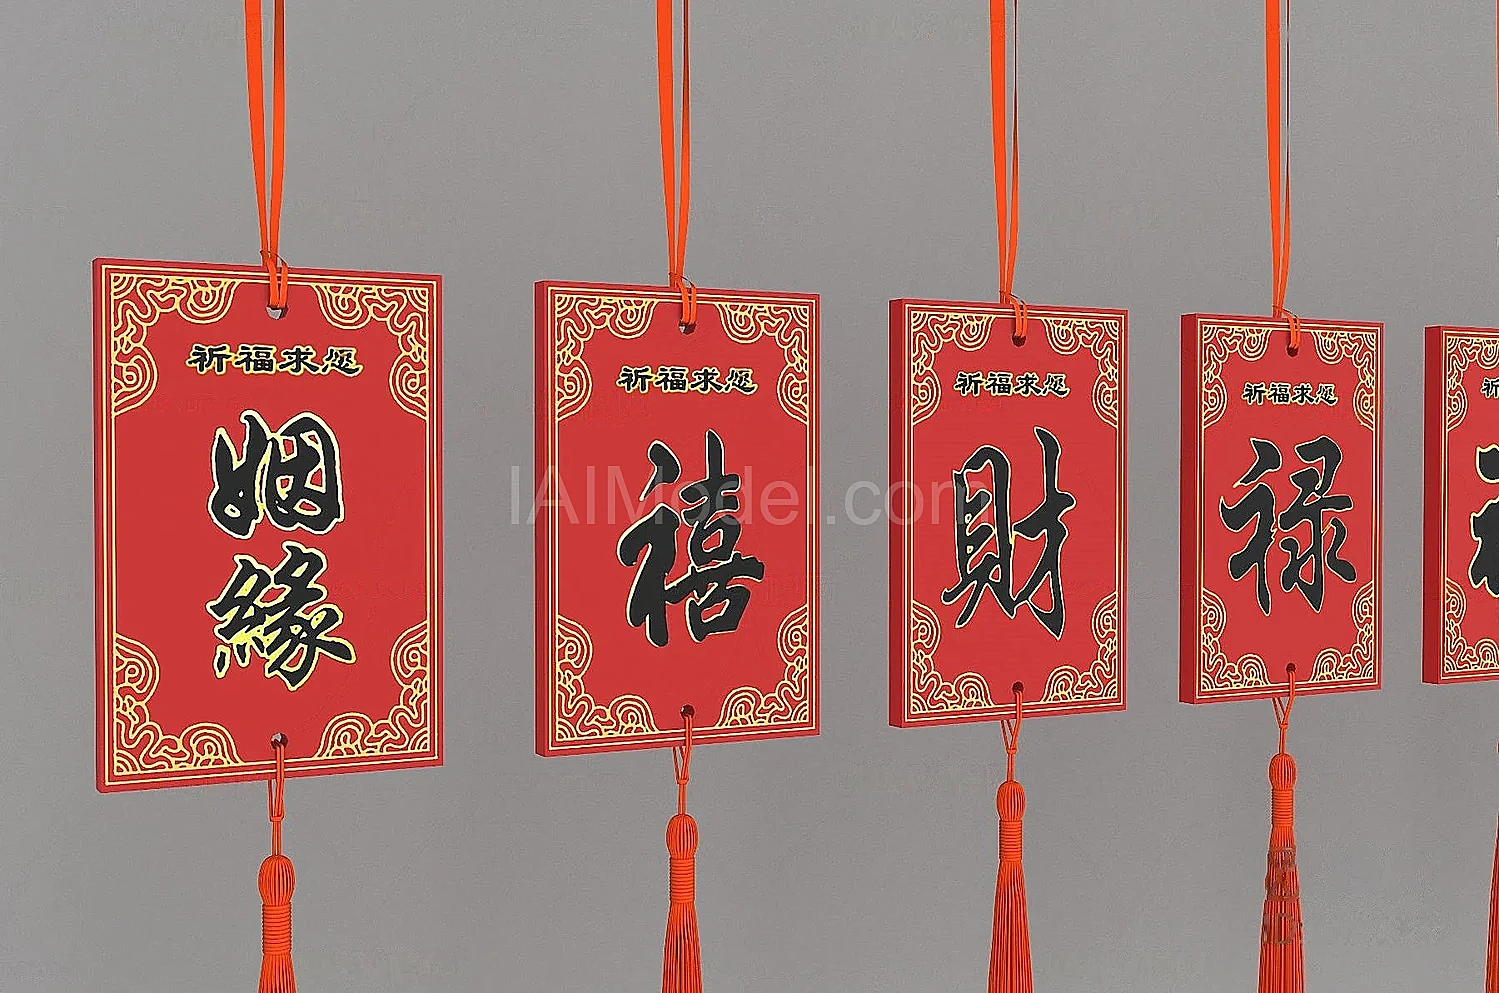 祈福求您
姻
緣
祈福求您
禧
祈福求您
財
祈福求您
禄
祈
IAIModel.com